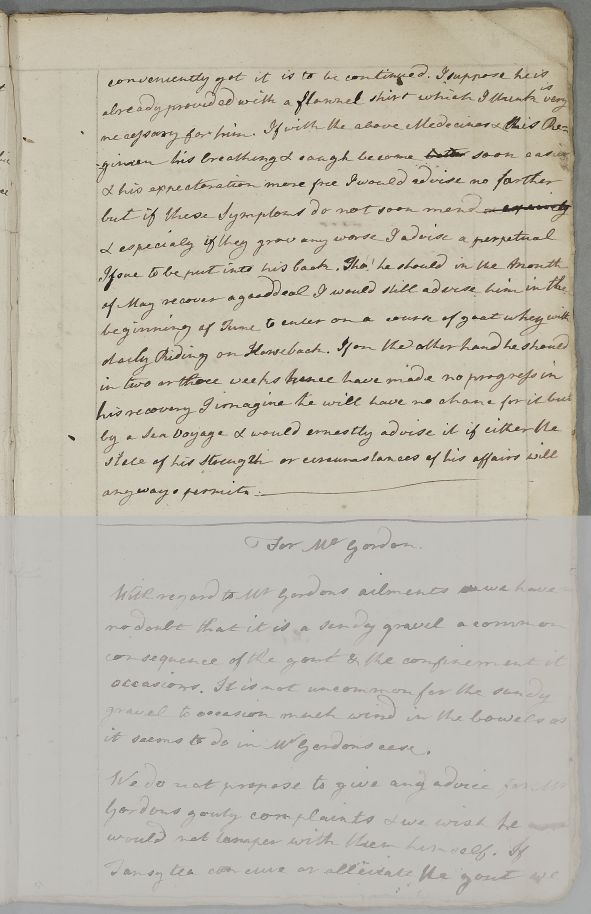 conveniently got it is to be continued. I suppose he is
already provided with a flannel shirt which I think is very
necessary for him. If with the above Medecines & this Re=
=gimen his breathing & cough become better soon easier
& his expectoration more free I would advise no farther
but if these Symptoms do not soon mend or especialy
& especialy if they grow any worse I advise a perpetual
Issue to be put into his back. Tho' he should in the Month
of May recover a good deal I would still advise him in the
beginning of June to enter on a course of goat whey with
daily Riding on Horseback. If on the other hand he should
in two or three weeks hence have made no progress in
his recovery I imagine he will have no chance for it but
by a Sea Voyage & would ernestly advise it if either the
State of his Strength or circumstances of his affairs will
anyways permitt.
For Mr Gordon.
With regard to Mr Gordons ailments we have
no doubt that it is a sandy gravel a common
consequence of the gout & the confinement it
occasions. It is not uncommon for the sandy
gravel to occasion much wind in the bowels as
it seems to do in Mr Gordons case.
We do not propose to give any advice for Mr
Gordons gouty complaints & we wish he
would not tamper with them himself. If
Tansy tea can cure or alleviate the gout we